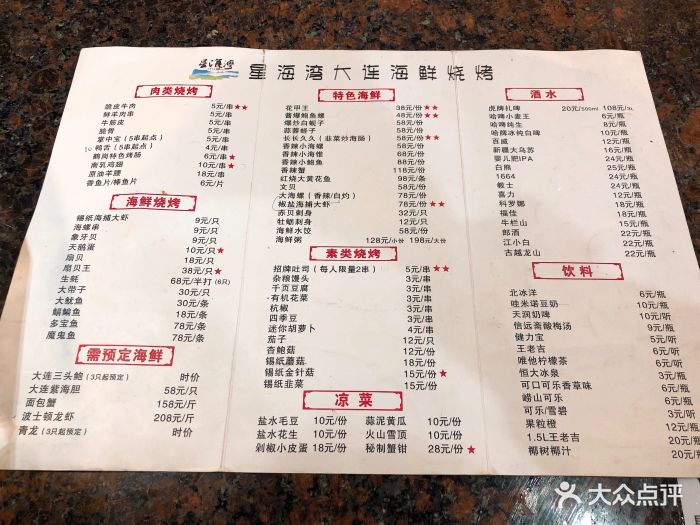 星海湾大连海鲜烧烤
肉类烧烤
脆皮牛肉 5元/串★★
鲜羊肉串 5元/串
牛筋皮 5元/串
脆骨 5元/串
掌中宝(5串起点) 5元/串
鸭舌(5串起点) 4元/串
鹤岗特色烤肠 6元/串★
南乳鸡翅 10元/串★
原油羊腰 18元/串
香鱼片/棒鱼片 6元/片
海鲜烧烤
锡纸海捕大虾 9元/只
海螺串 9元/只
象牙贝 9元/只
天鹅蛋 10元/只★
扇贝 18元/只
扇贝王 38元/只★
生蚝 68元/半打(6只)
大带子 30元/只
大鱿鱼 30元/条
鲳鳊鱼 18元/条
多宝鱼 78元/条
魔鬼鱼 78元/条
需预定海鲜
大连三头鲍(3只起预定) 时价
大连紫海胆 58元/只
面包蟹 158元/斤
波士顿龙虾 208元/斤
青龙(3只起预定) 时价
特色海鲜
花甲王 38元/份★★
酱爆鲍鱼螺 48元/份★★
爆炒白蚬子 58元/份
蒜蓉蛏子 58元/份
长长久久(韭菜炒海肠) 68元/份★
香辣小海螺 58元/份
香辣小海锥 68元/份
香辣小鲍鱼 68元/份
香辣蟹 118元/份
红烧大黄花鱼 98元/条
文贝 58元/份
大海螺(香辣/白灼) 78元/份
椒盐海捕大虾 78元/份★★
赤贝刺身 32元/只
牡蛎刺身 12元/只
海鲜水饺 58元/份
海鲜粥 128元/小份 198元/大份
素类烧烤
招牌吐司(每人限量2串) 5元/串★★
杂粮馒头 3元/串
千页豆腐 3元/串
有机花菜 3元/串
杭椒 3元/串
四季豆 3元/串
迷你胡萝卜 4元/串
茄子 12元/只
杏鲍菇 12元/份
锡纸蘑菇 12元/份
锡纸金针菇 15元/份★
锡纸韭菜 15元/份
凉菜
盐水毛豆 10元/份 蒜泥黄瓜 10元/份
盐水花生 10元/份 火山雪顶 10元/份
剁椒小皮蛋 18元/份 秘制蟹钳 28元/份★
酒水
虎牌扎啤 20元/500ml 108元/3L
哈啤小麦王 6元/瓶
哈啤纯生 8元/瓶
哈啤冰纯白啤 10元/瓶
百威 12元/瓶
新疆大乌苏 16元/瓶
婴儿肥IPA 24元/瓶
白熊 25元/瓶
1664 24元/瓶
教士 24元/瓶
喜力 12元/瓶
科罗娜 18元/瓶
福佳 18元/瓶
牛栏山 25元/瓶
郎酒 22元/瓶
江小白 22元/瓶
古越龙山 22元/瓶
饮料
北冰洋 6元/瓶
哇米诺豆奶 10元/瓶
天润奶啤 10元/瓶
信远斋酸梅汤 9元/瓶
健力宝 5元/听
王老吉 5元/听
唯他柠檬茶 6元/瓶
恒大冰泉 3元/瓶
可口可乐香草味 6元/瓶
崂山可乐 6元/瓶
可乐/雪碧 3元/听
果粒橙 12元/瓶
1.5L王老吉 20元/瓶
椰树椰汁 20元/瓶
大众点评